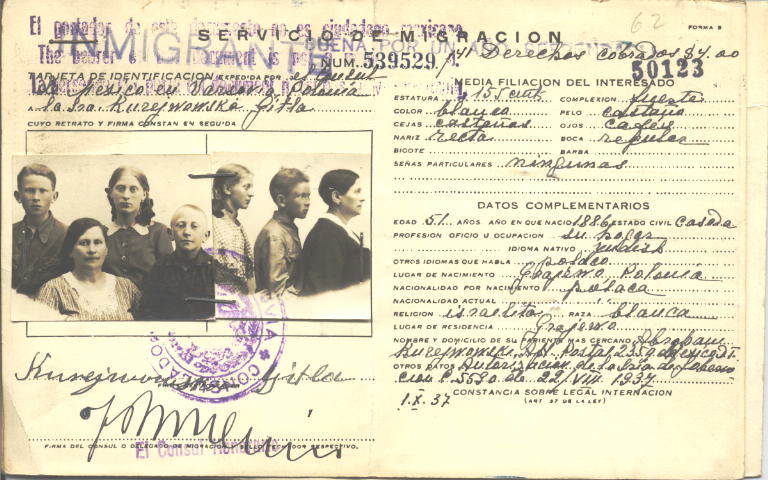 62
FORMA 5
El portador de este documento no es ciudadano mexicano
SERVICIO DE MIGRACION
INMIGRANTE
BUENA POR UN AÑO
The bearer of document is
NUM. 539529
Derechos cobrados $4.00
50123
TARJETA DE IDENTIFICACION EXPEDIDA POR el Consul
de Mexico en Varsovia Polonia
A la Sra. Kurejwowska Gitla
CUYO RETRATO Y FIRMA CONSTAN EN SEGUIDA
Kurejwowska Gitla
FIRMA DEL CONSUL O DELEGADO DE MIGRACION Y SELLO FECHADOR RESPECTIVO.
El Consul Honorario
MEDIA FILIACION DEL INTERESADO
ESTATURA 155 cmts COMPLEXION fuerte
COLOR blanco PELO castaño
CEJAS castañas OJOS cafes
NARIZ recta BOCA regular
BIGOTE BARBA
SEÑAS PARTICULARES ningunas
DATOS COMPLEMENTARIOS
EDAD 51 AÑOS AÑO EN QUE NACIO 1886 ESTADO CIVIL casada
PROFESION OFICIO U OCUPACION su hogar
IDIOMA NATIVO yidish
OTROS IDIOMAS QUE HABLA polaco
LUGAR DE NACIMIENTO Grajewo Polonia
NACIONALIDAD POR NACIMIENTO polaca
NACIONALIDAD ACTUAL " "
RELIGION israelita RAZA blanca
LUGAR DE RESIDENCIA Grajewo
NOMBRE Y DOMICILIO DE SU PARIENTE MAS CERCANO Abraham
Kurejwowski Apt. Postal 2350 Mexico D.F.
OTROS DATOS Autorizacion de la Sría de Goberna
cion 5590 de 22/VIII 1937
CONSTANCIA SOBRE LEGAL INTERNACION
(ART 57 DE LA LEY)
1.X.37